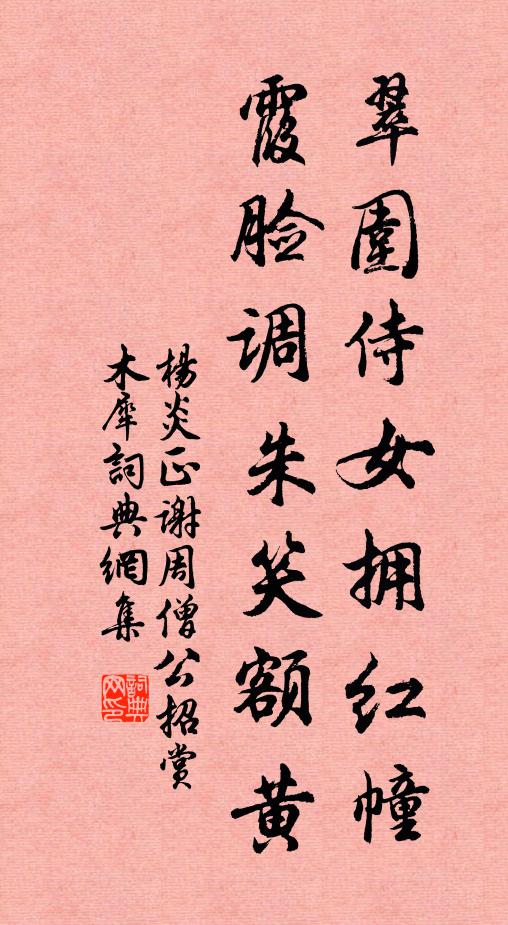 翠圍侍女拥红幢
霞脸调朱笑額黄
楊炎正谢周僧公招赏
木犀詞典網集
詞典网印